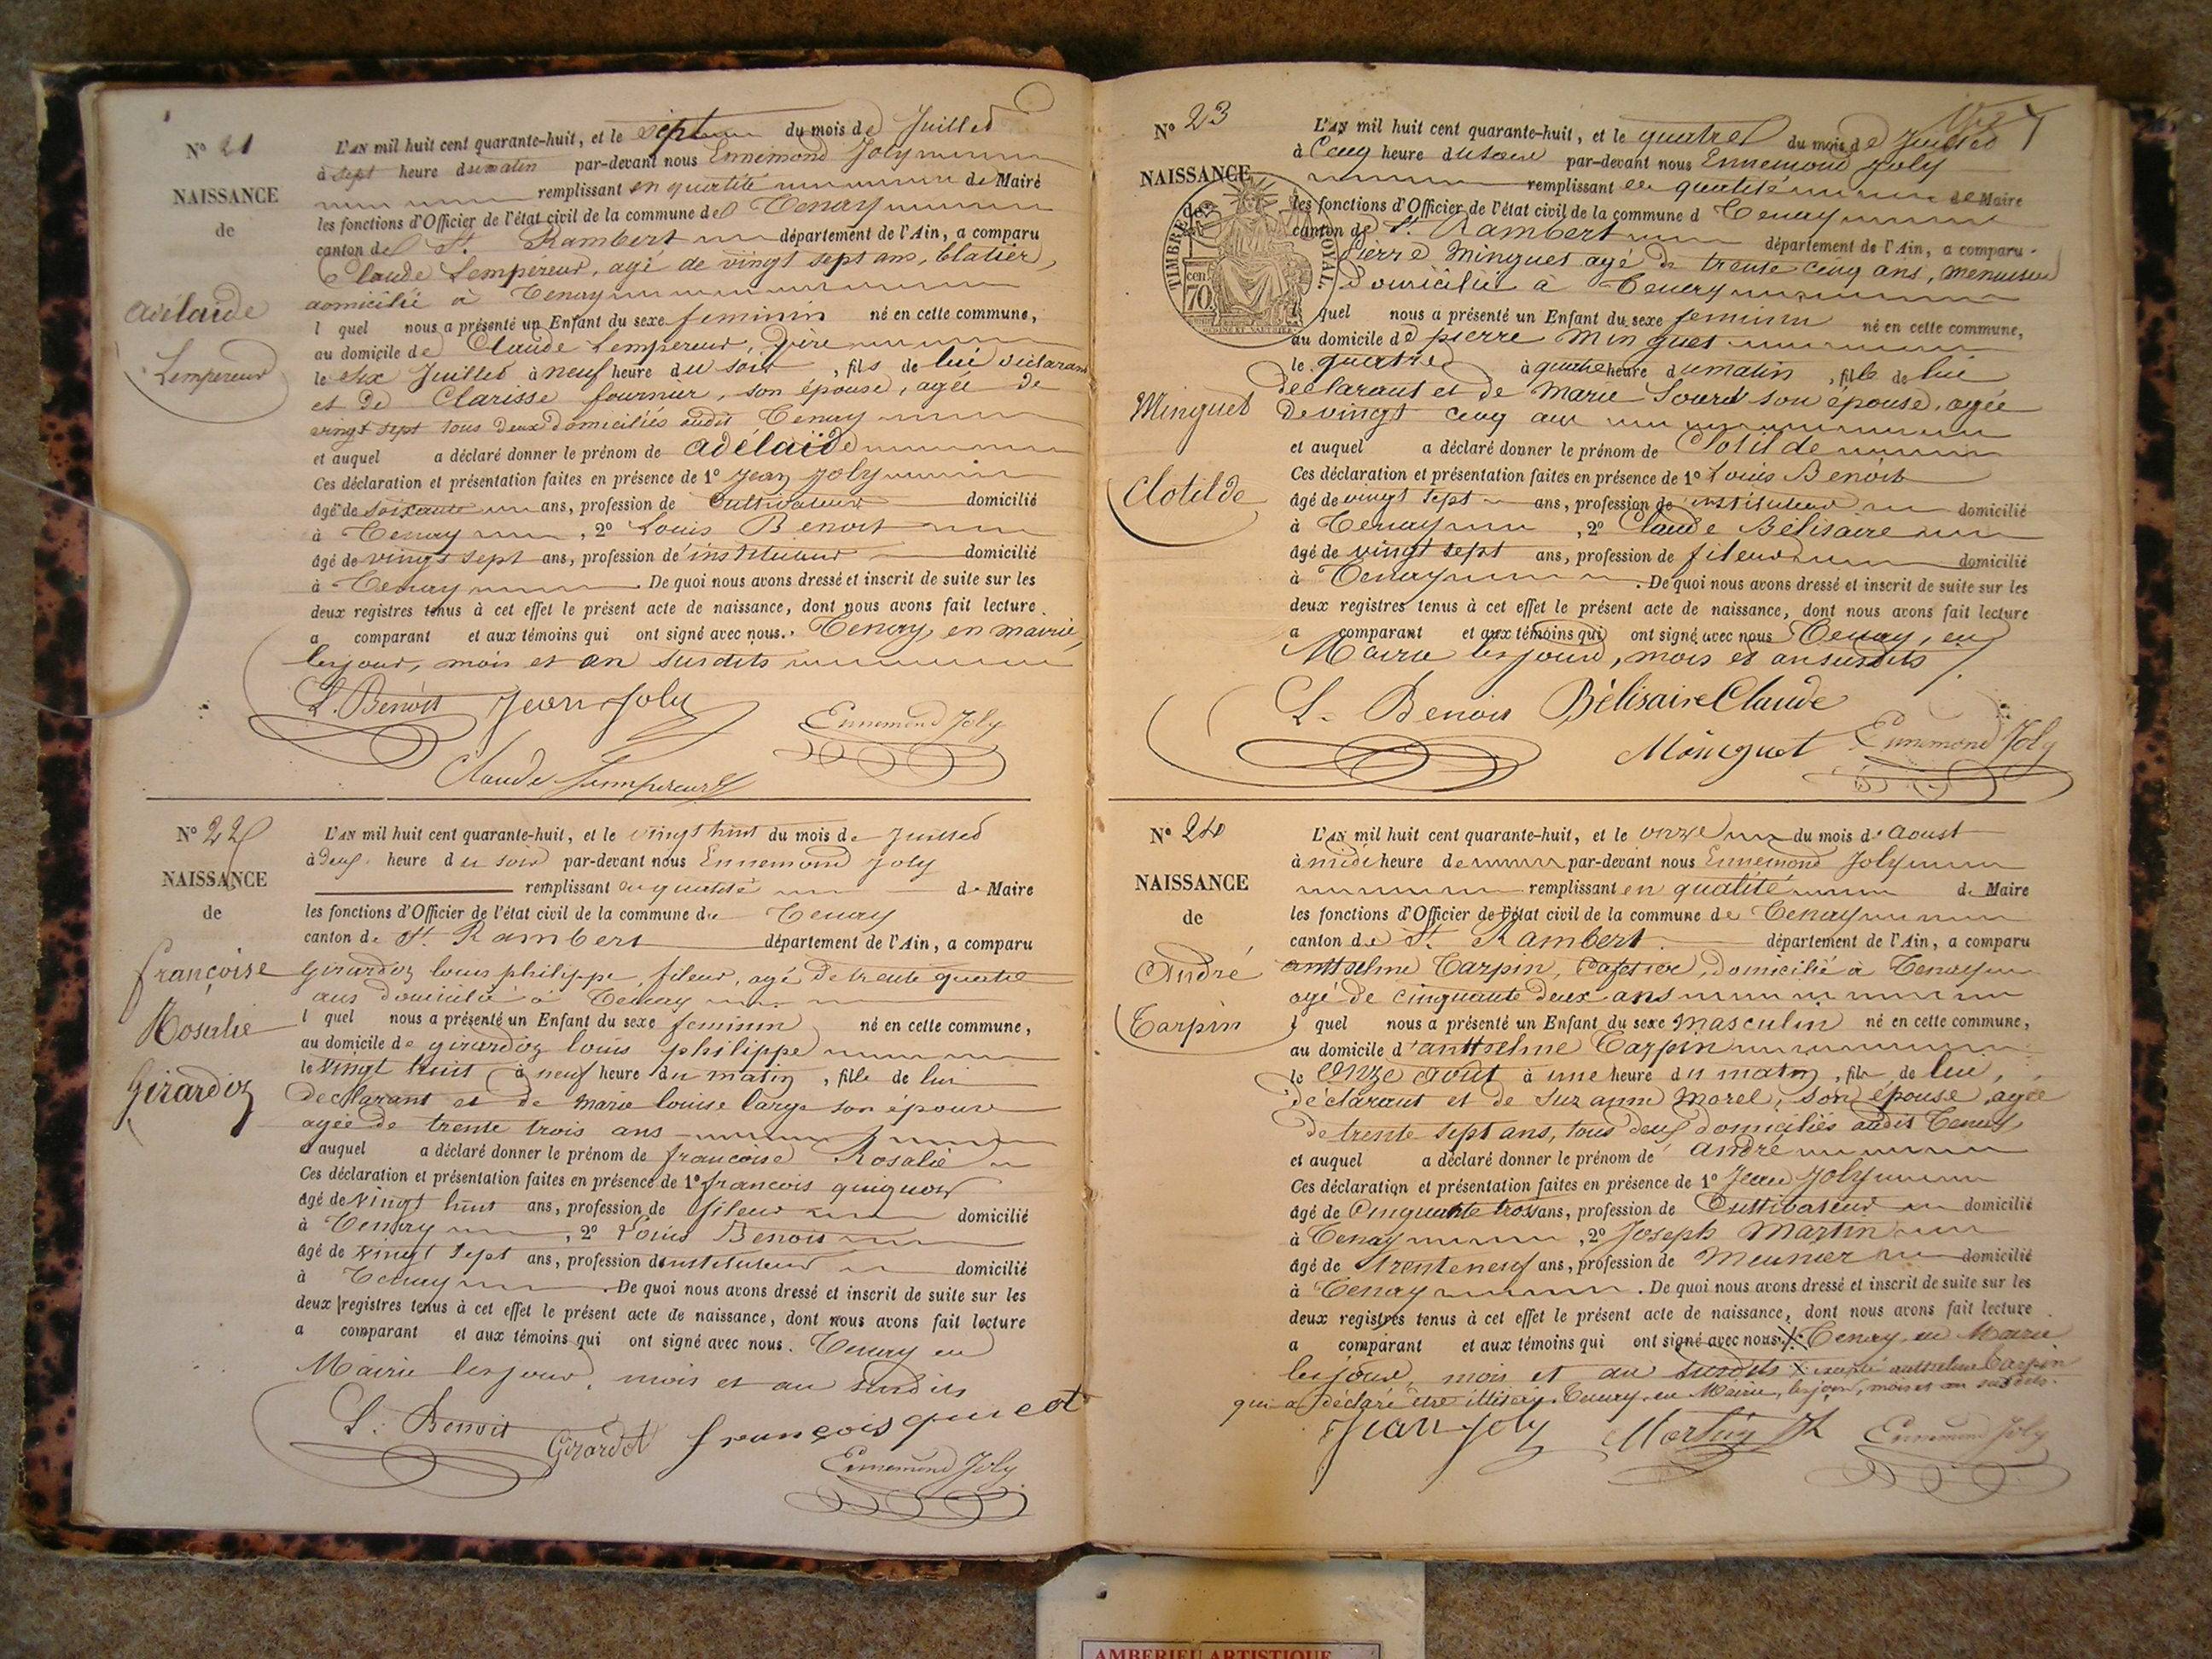 N° 21
NAISSANCE
de
Adélaïde
Lempereur
L'AN mil huit cent quarante-huit, et le sept du mois de Juillet
à sept heure du matin par-devant nous Ennemond Joly
remplissant en qualité de Maire
les fonctions d'Officier de l'état civil de la commune de Tenay
canton de St. Rambert département de l'Ain, a comparu
Claude Lempéreur, agé de vingt sept ans, blatier,
domicilié à Tenay
l quel nous a présenté un Enfant du sexe feminin né en cette commune,
au domicile de Claude Lempereur, père
le six Juillet à neuf heure du soir, fils de lui déclarant
et de Clarisse fournier, son épouse, agée de
vingt sept tous deux domiciliés audit Tenay
et auquel a déclaré donner le prénom de adélaïde
Ces déclaration et présentation faites en présence de 1° Jean Joly
âgé de soixante ans, profession de Cultivateur domicilié
à Tenay, 2° Louis Benoit
âgé de vingt sept ans, profession de instituteur domicilié
à Tenay. De quoi nous avons dressé et inscrit de suite sur les
deux registres tenus à cet effet le présent acte de naissance, dont nous avons fait lecture
a comparant et aux témoins qui ont signé avec nous. Tenay, en mairie,
les jour, mois et an susdits
L. Benoit Jean Joly
Ennemond Joly
Claude Lempereur
N° 22
NAISSANCE
de
françoise
Rosalie
Girardoz
L'AN mil huit cent quarante-huit, et le vingt huit du mois de Juillet
à deux heure du soir par-devant nous Ennemond Joly
remplissant en qualité de Maire
les fonctions d'Officier de l'état civil de la commune de Tenay
canton de St. Rambert département de l'Ain, a comparu
Girardoz louis philippe, fileur, agé de trente quatre
ans domicilié à Tenay
l quel nous a présenté un Enfant du sexe feminin né en cette commune,
au domicile de girardoz louis philippe
le vingt huit à neuf heure du matin, fille de lui
declarant et de marie louise large son épouse
agée de trente trois ans
et auquel a déclaré donner le prénom de francoise Rosalie
Ces déclaration et présentation faites en présence de 1° francois
âgé de vingt huit ans, profession de fileur domicilié
à Tenay, 2° Louis Benoit
âgé de vingt sept ans, profession d instituteur domicilié
à Tenay. De quoi nous avons dressé et inscrit de suite sur les
deux registres tenus à cet effet le présent acte de naissance, dont nous avons fait lecture
a comparant et aux témoins qui ont signé avec nous. Tenay en
Mairie les jour, mois et an susdits
L. Benoit Girardot françois
Ennemond Joly
N° 23
NAISSANCE
TIMBRE ROYAL
70 cen
Minguet
Clotilde
L'AN mil huit cent quarante-huit, et le quatre du mois de Juillet
à Cinq heure du soir par-devant nous Ennemond Joly
remplissant en qualité de Maire
les fonctions d'Officier de l'état civil de la commune d Tenay
canton de St. Rambert département de l'Ain, a comparu
Pierre Minguet agé de trente cinq ans, menuisier
Domicilié à Tenay
quel nous a présenté un Enfant du sexe feminin né en cette commune,
au domicile de pierre Minguet
le quatre à quatre heure du matin, fille de lui
declarant et de Marie Sourd son épouse, agée
de vingt cinq ans
et auquel a déclaré donner le prénom de Clotilde
Ces déclaration et présentation faites en présence de 1° Louis Benoit
âgé de vingt sept ans, profession de instituteur domicilié
à Tenay, 2° Claude Bélisaire
âgé de vingt sept ans, profession de fileur domicilié
à Tenay. De quoi nous avons dressé et inscrit de suite sur les
deux registres tenus à cet effet le présent acte de naissance, dont nous avons fait lecture
a comparant et aux témoins qui ont signé avec nous Tenay, en
Mairie les jour, mois et an susdits
L. Benoit Bélisaire Claude
Minguet Ennemond Joly
N° 24
NAISSANCE
de
André
Carpin
L'AN mil huit cent quarante-huit, et le onze du mois d'Aoust
à midi heure de par-devant nous Ennemond Joly
remplissant en qualité de Maire
les fonctions d'Officier de l'état civil de la commune de Tenay
canton de St. Rambert département de l'Ain, a comparu
antthelme Carpin, Cafetier, domicilié à Tenay
agé de cinquante deux ans
l quel nous a présenté un Enfant du sexe masculin né en cette commune,
au domicile d'antthelme Carpin
le onze août à une heure du matin, fils de lui,
déclarant et de Suzanne Morel, son épouse, agée
de trente sept ans, tous deux domiciliés audit Tenay
et auquel a déclaré donner le prénom de André
Ces déclaration et présentation faites en présence de 1° Jean Joly
âgé de Cinquante trois ans, profession de Cultivateur domicilié
à Tenay, 2° Joseph Martin
âgé de trente neuf ans, profession de Meunier domicilié
à Tenay. De quoi nous avons dressé et inscrit de suite sur les
deux registres tenus à cet effet le présent acte de naissance, dont nous avons fait lecture
a comparant et aux témoins qui ont signé avec nous X. Tenay, en Mairie
les jour, mois et an susdits X excepté antthelme Carpin
qui a déclaré être illiséré. Tenay, en Mairie, les jour, mois et an susdits.
Jean Joly Martin Jh Ennemond Joly
AMBERIEU ARTISTIQUE